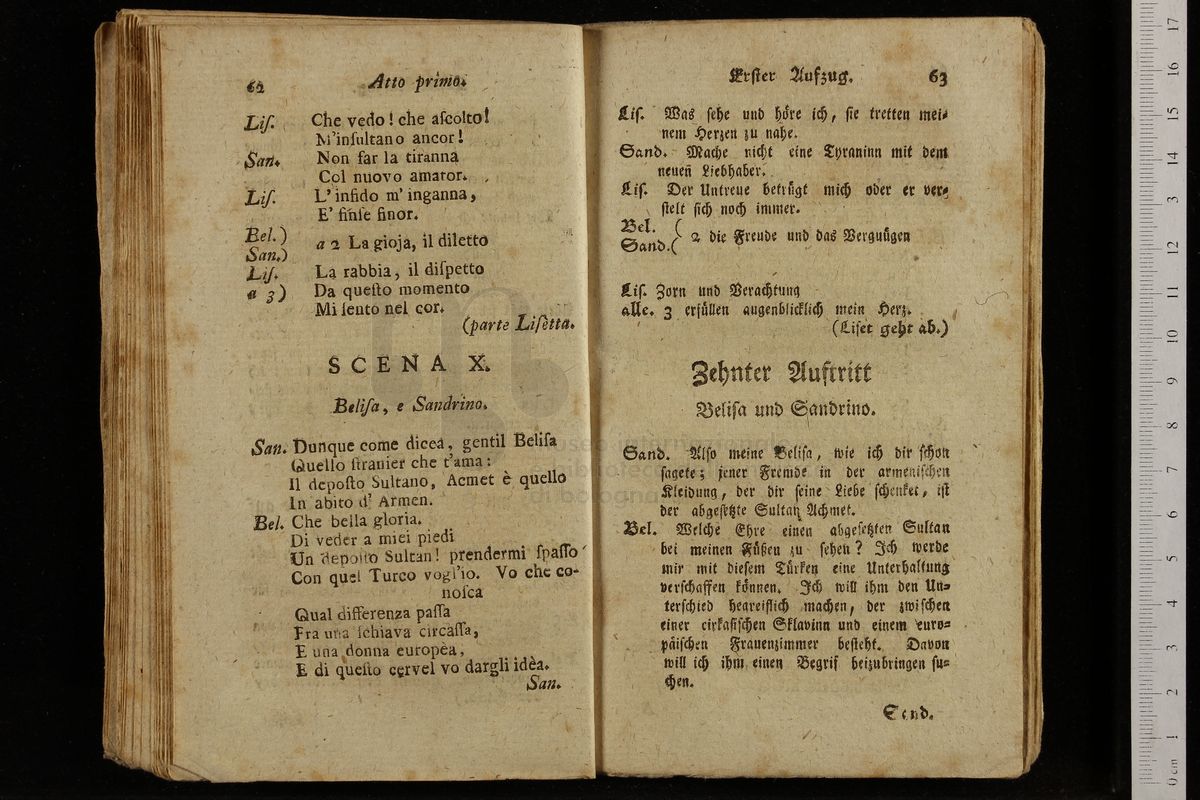 62 Atto primo.
Liſ. Che vedo! che aſcolto!
M'inſultano ancor!
San. Non far la tiranna
Col nuovo amator.
Liſ. L' infido m' inganna,
E' finſe finor.
Bel.)
San.) a 2 La gioja, il diletto
Liſ. La rabbia, il diſpetto
a 3) Da queſto momento
Mi ſento nel cor.
(parte Liſetta.
SCENA X.
Beliſa, e Sandrino.
San. Dunque come dicea, gentil Beliſa
Quello ſtranier che t'ama:
Il depoſto Sultano, Acmet è quello
In abito d' Armen.
Bel. Che bella gloria.
Di veder a miei piedi
Un depoſto Sultan! prendermi ſpaſſo
Con quel Turco vogl'io. Vo che co-
noſca
Qual differenza paſſa
Fra una ſchiava circaſſa,
E una donna europèa,
E di queſto cervel vo dargli idèa.
San.
Erſter Aufzug. 63
Liſ. Was ſehe und höre ich, ſie tretten mei-
nem Herzen zu nahe.
Sand. Mache nicht eine Tyraninn mit dem
neuen Liebhaber.
Liſ. Der Untreue betrügt mich oder er ver-
ſtelt ſich noch immer.
Bel. (
Sand.( 2 die Freude und das Verguügen
Liſ. Zorn und Verachtung
alle. 3 erfüllen augenblicklich mein Herz.
(Liſet geht ab.)
Zehnter Auftritt
Beliſa und Sandrino.
Sand. Alſo meine Beliſa, wie ich dir ſchon
ſagete; jener Fremde in der armeniſchen
Kleidung, der dir ſeine Liebe ſchenket, iſt
der abgeſetzte Sultan Achmet.
Bel. Welche Ehre einen abgeſetzten Sultan
bei meinen Füßen zu ſehen? Ich werde
mir mit dieſem Türken eine Unterhaltung
verſchaffen können. Ich will ihm den Un-
terſchied begreiflich machen, der zwiſchen
einer cirkaſiſchen Sklavinn und einem euro-
päiſchen Frauenzimmer beſteht. Davon
will ich ihm einen Begrif beizubringen ſu-
chen.
Sand.